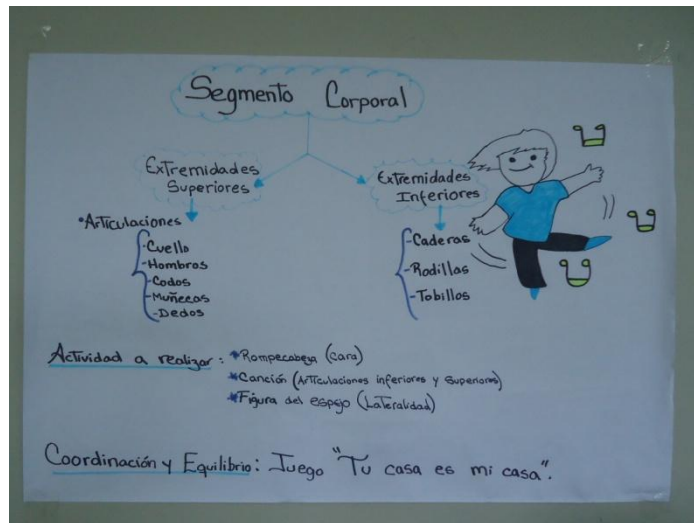 Segmento Corporal
Extremidades
Superiores
Extremidades
Inferiores
•Articulaciones
-Cuello
-Hombros
-Codos
-Muñecas
-Dedos
-Caderas
-Rodillas
-Tobillos
Actividad a realizar: *Rompecabeza (cara)
*Canción (Articulaciones inferiores y superiores)
*Figura del espejo (Lateralidad)
Coordinación y Equilibrio: Juego "Tu casa es mi casa".